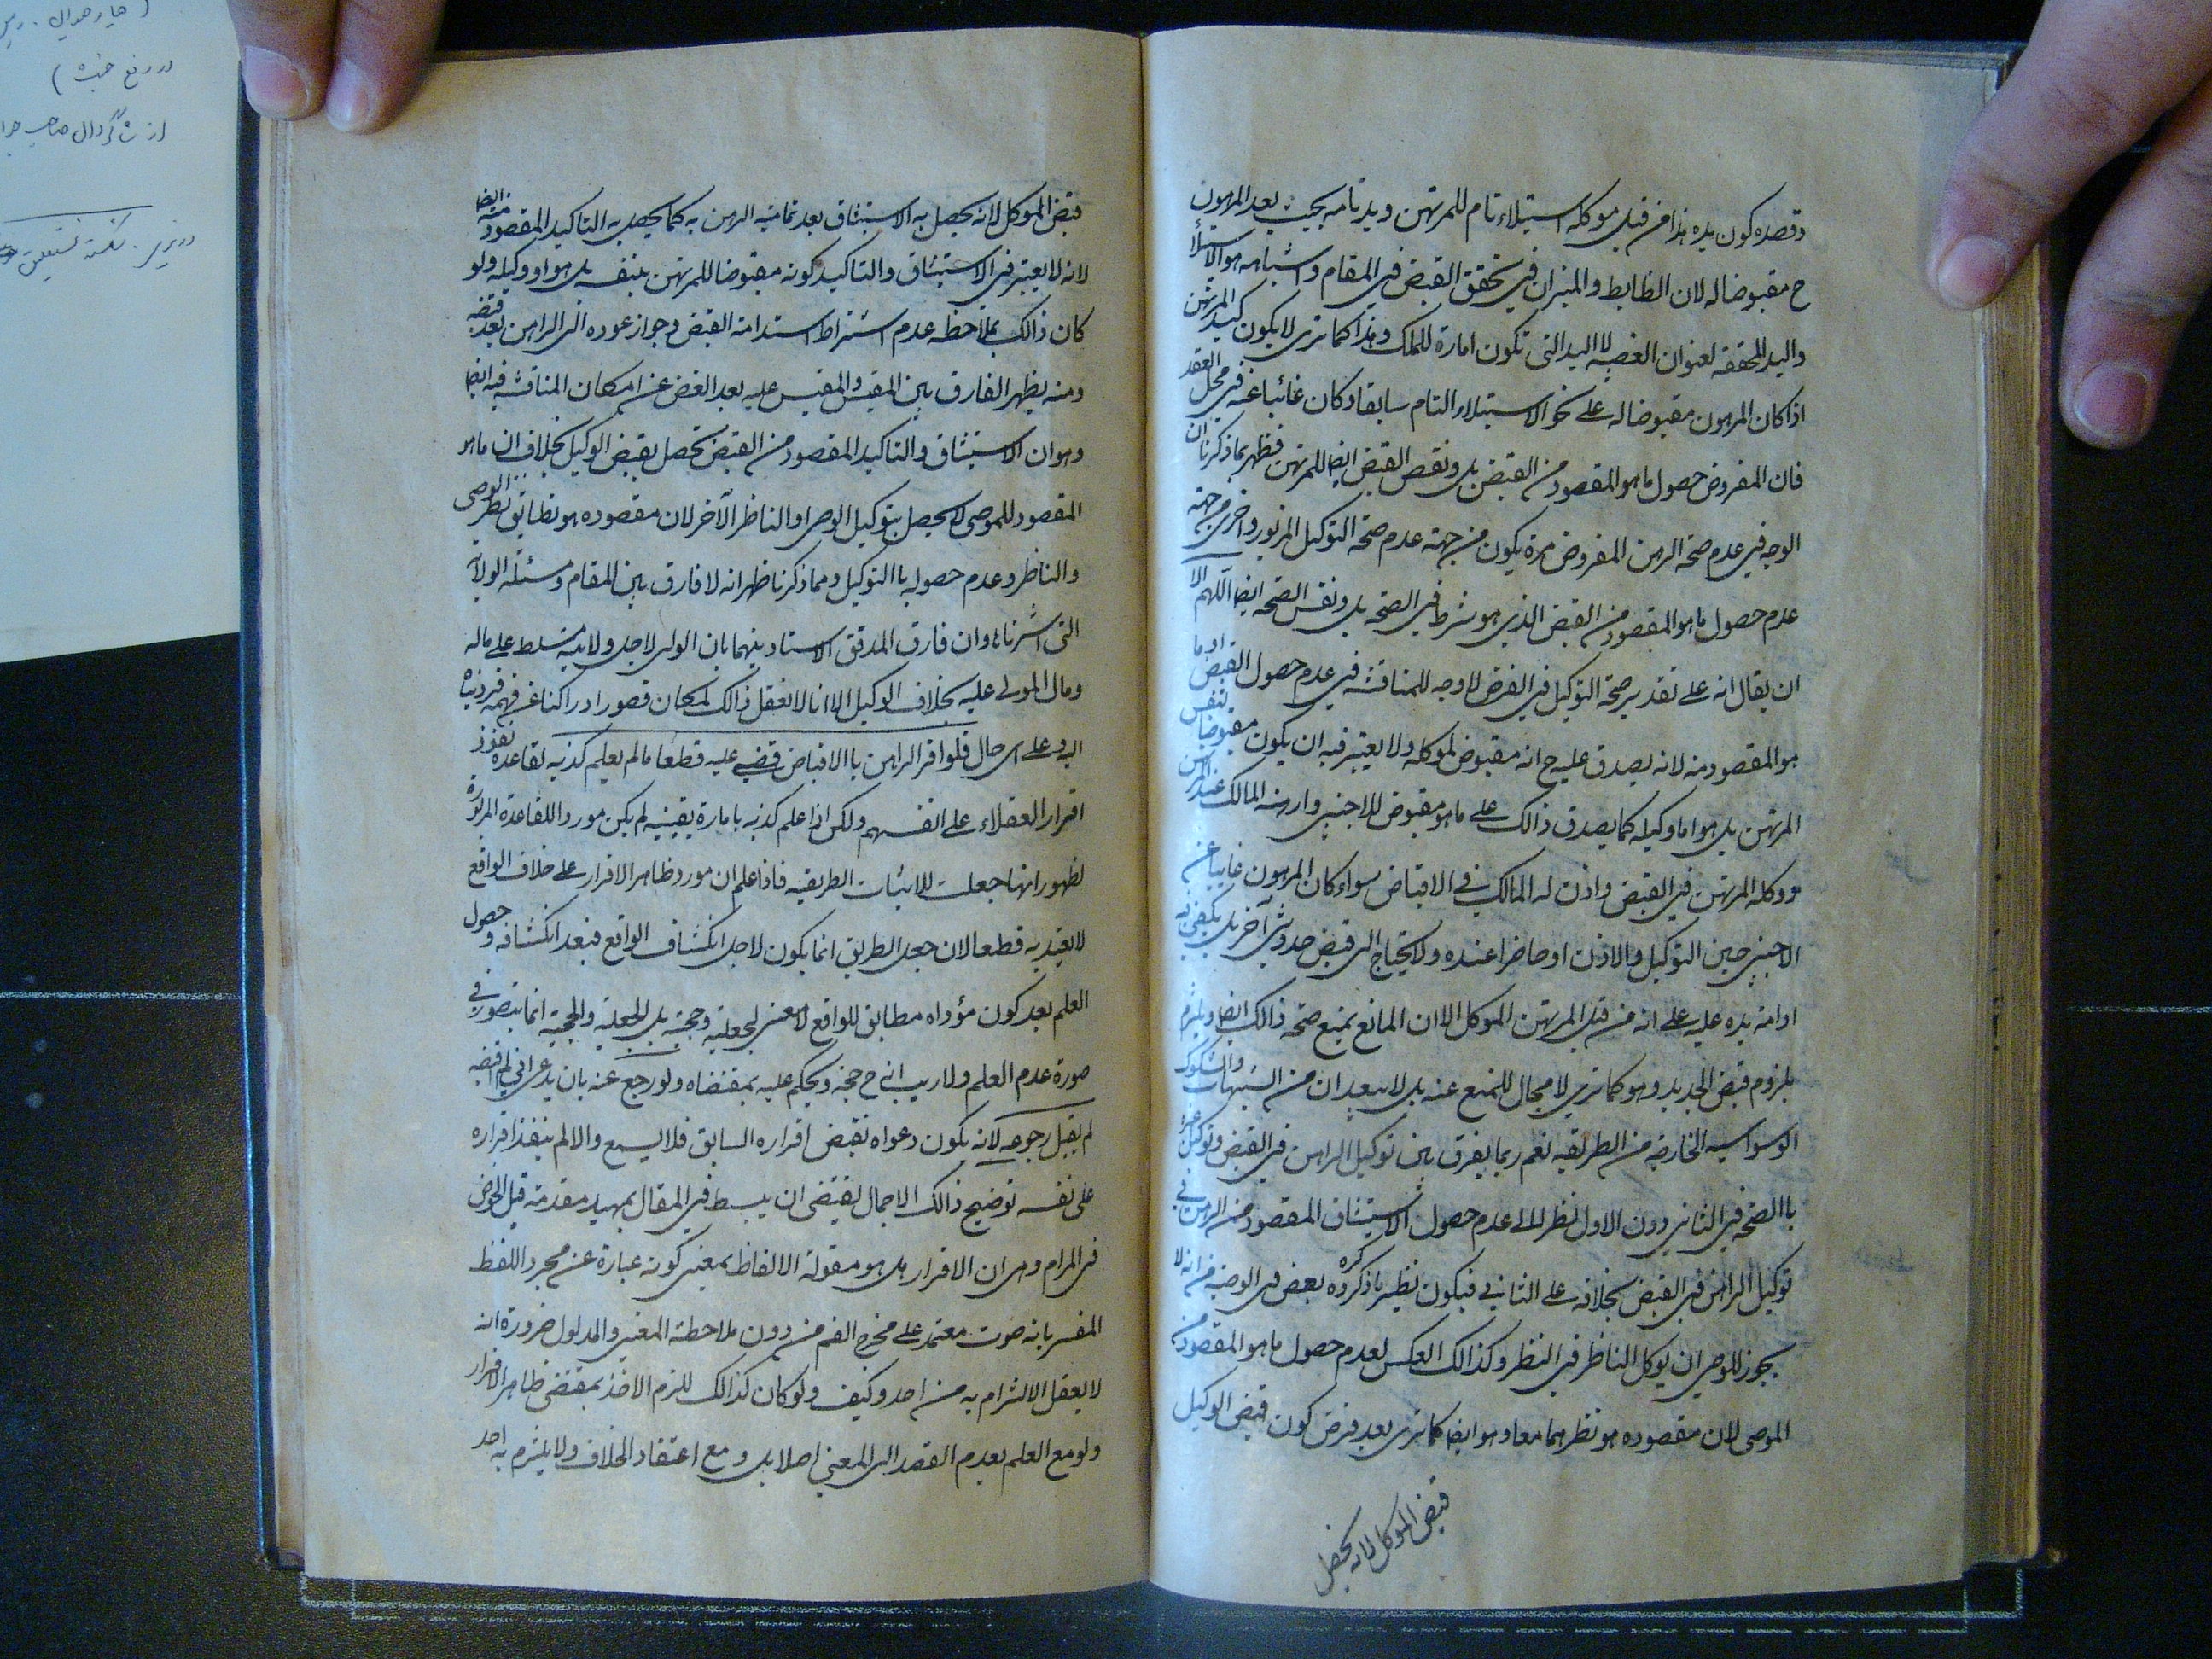 وقصده كون يده هذا من قبل موكله استيلاء تام للمرتهن ويد تامه بحيث يعد المرهون
ح مقبوضا له لان الظابط والميزان في تحقق القبض في المقام واشباهه هو الاستيلاء
واليد المحققه لعنوان الغصب لا اليد التي تكون امارة للملك وهذا كما ترى لا يكون كيد المرتهن
اذا كان المرهون مقبوضا له على نحو الاستيلاء التام سابقا وكان غائبا عنه في محل العقد
فان المفروض حصول ما هو المقصود من القبض بل ونفس القبض ايضا للمرتهن فظهر مما ذكرنا ان
الوجه في عدم صحة الرهن المفروض مرة يكون من جهة عدم صحة التوكيل المزبور واخرى من جهة
عدم حصول ما هو المقصود من القبض الذي هو شرط في الصحه بل ونفس الصحه ايضا اللهم الا
ان يقال انه على تقدير صحة التوكيل في الفرض لا وجه للمناقشه في عدم حصول القبض او ما
هو المقصود منه لانه يصدق عليه ح انه مقبوض لموكله ولا يعتبر فيه ان يكون مقبوضا لنفس
المرتهن بل هو اما وكيله كما يصدق ذالك على ما هو مقبوض للاجنبي وارهنه المالك عند المرتهن
ووكله المرتهن في القبض واذن له المالك في الاقباض سواء كان المرهون غايبا عن
الاجنبي حين التوكيل والاذن او حاضرا عنده ولا يحتاج الى قبض حدوثي آخر بل يكفي فيه
ادامة يده عليه على انه من قبل المرتهن الموكل الا ان المانع يمنع صحة ذالك ايضا ويلتزم
بلزوم قبض الجديد وهو كما ترى لا مجال للمنع عنه بل لا يبعد ان من الشبهات والشكوك
الوسواسيه الخارجه من الطريقيه نعم ربما يفرق بين توكيل الراهن في القبض وتوكيل غيره
باالصحه في الثاني دون الاول نظرا الى عدم حصول الاستيثاق المقصود من الرهن في
توكيل الراهن في القبض بخلافه على الثاني فيكون نظير ما ذكره بعض في الوصيه من انه لا
يجوز للوصي ان يوكل الناظر في النظر وكذالك العكس لعدم حصول ما هو المقصود من
الموصى لان مقصوده هو نظرهما معا وهو ايضا كما ترى بعد فرض كون قبض الوكيل
قبض الموكل لانه يحصل
قبض الموكل لانه يحصل به الاستيثاق بعد تماميه الرهن به كما يحصل به التاكيد المقصود منه ايضا
لانه لا يعتبر في الاستيثاق والتاكيد كونه مقبوضا للمرتهن بنفسه بل هو او وكيله ولو
كان ذالك بملاحظه عدم اشتراط استدامة القبض وجواز عوده الى الراهن بعد قبضه
ومنه يظهر الفارق بين المقيس والمقيس عليه بعد الغض عن امكان المناقشه فيه ايضا
وهو ان الاستيثاق والتاكيد المقصود من القبض تحصل بقبض الوكيل بخلاف ان ما هو
المقصود للموصى لا يحصل بتوكيل الوصي او الناظر الآخر لان مقصوده هو تطابق نظر الوصي
والناظر وعدم حصوله باالتوكيل ومما ذكرنا ظهر انه لا فارق بين المقام ومسئلة الولاية
التي اشرناها وان فارق المدقق الاستاد بينهما بان الولى لاجل ولايته مسلط على ماله
ومال المولى عليه بخلاف الوكيل الا انا لا نعقل ذالك لمكان قصور ادراكنا عن فهمه
وعلى اي حال فلو اقر الراهن باالاقباض قضي عليه قطعا ما لم يعلم كذبه لقاعدة نفوذ
اقرار العقلاء على انفسهم ولكن اذا علم كذبه بامارة يقينيه لم يكن موردا للقاعدة المزبورة
لظهور انها جعلت للاثبات الطريقيه فاذا علم ان مورد ظاهر الاقرار على خلاف الواقع
لا يعتد به قطعا لان جعل الطريق انما يكون لاجل انكشاف الواقع فبعد انكشافه وحصول
العلم بعد كون مؤداه مطابق للواقع لا معنى لجعليته وحجيته بل الجعليه والحجية انما يتصور في
صورة عدم العلم ولا ريب انه ح حجة ويحكم عليه بمقتضاه ولو رجع عنه بان يدعي اني لم اقبضه
لم يقبل رجوعه لانه يكون دعواه نقيض اقراره السابق فلا يسمع والا لم ينفذ اقراره
على نفسه توضيح ذالك الاجمال يقتضى ان يبسط في المقال بتمهيد مقدمة قبل الخوض
في المرام وهي ان الاقرار هل هو مقولة الالفاظ بمعنى كونه عبارة عن مجرد اللفظ
المفسر بانه صوت معتمد على مخرج الفم من دون ملاحظة المعنى والمدلول ضرورة انه
لا يعقل الالتزام به من احد وكيف ولو كان كذالك للزم الاخذ بمقتضى ظاهر الاقرار
ولو مع العلم بعدم القصد الى المعنى اصلا بل ومع اعتقاد الخلاف ولا يلتزم به احد